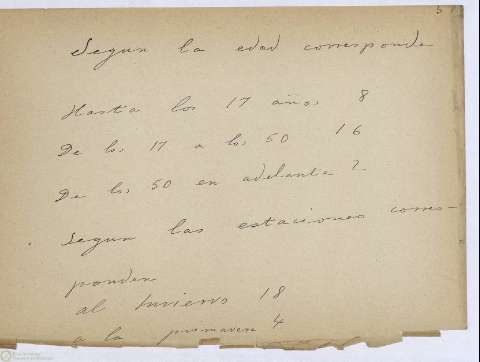 5
Segun la edad corresponde
Hasta los 17 años 8
De los 17 a los 50 16
De los 50 en adelante 2
Segun las estaciones corres-
ponden
al Invierno 18
a la primavera 4